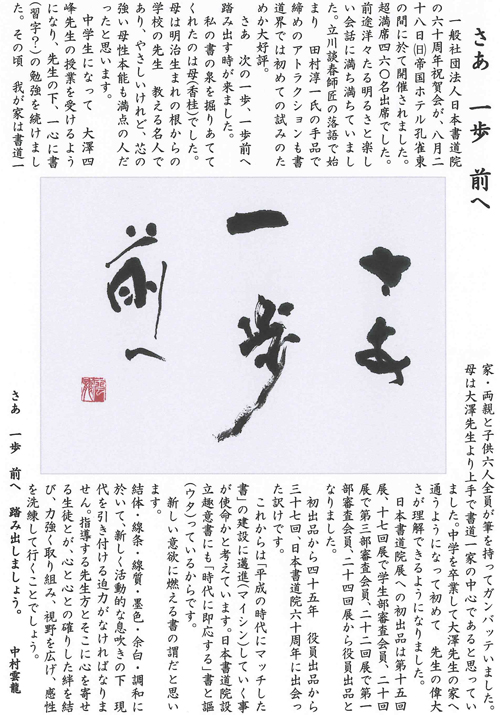 さあ 一歩 前へ
一般社団法人日本書道院
の六十周年祝賀会が、八月二
十八日㈰帝国ホテル孔雀東
の間に於て開催されました。
超満席四六〇名出席でした。
前途洋々たる明るさと楽し
い会話に満ち満ちていまし
た。立川談春師匠の落語で始
まり 田村淳一氏の手品で
締めのアトラクションも書
道界では初めての試みのた
めか大好評。
さあ 次の一歩、一歩前へ
踏み出す時が来ました。
私の書の泉を掘りあてて
くれたのは母(香桂)でした。
母は明治生まれの根からの
学校の先生 教える名人で
あり、やさしいけれど、芯の
強い母性本能も満点の人だ
ったと思います。
中学生になって 大澤四
峰先生の授業を受けるよう
になり、先生の下、一心に書
(習字?)の勉強を続けまし
た。その頃 我が家は書道一
さあ
一歩
前へ
家・両親と子供六人全員が筆を持ってガンバッテいました。
母は大澤先生より上手で書道一家の中心であると思ってい
ました。中学を卒業して大澤先生の家へ
通うようになって初めて 先生の偉大
さが理解できるようになりました。
日本書道院展への初出品は第十五回
展、十七回展で学生部審査会員、二十回
展で第三部審査会員、二十二回展で第一
部審査会員、二十四回展から役員出品と
なりました。
初出品から四十五年 役員出品から
三十七回、日本書道院六十周年に出会っ
た訳です。
これからは「平成の時代にマッチした
書」の建設に邁進(マイシン)していく事
が使命かと考えています。日本書道院設
立趣意書にも「時代に即応する」書と謳
(ウタ)っているからです。
新しい意欲に燃える書の謂だと思い
ます。
結体・線条 線質・墨色・余白・調和に
於いて、新しく活動的な息吹きの下 現
代を引き付ける迫力がなければなりま
せん。指導する先生方とそこに心を寄せ
る生徒とが、心と心との確りした絆を結
び、力強く取り組み、視野を広げ、感性
を洗練して行くことでしょう。
さあ 一歩 前へ 踏み出しましょう。
中村雲龍